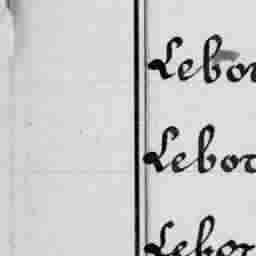 Lebor
Lebor
Lebor